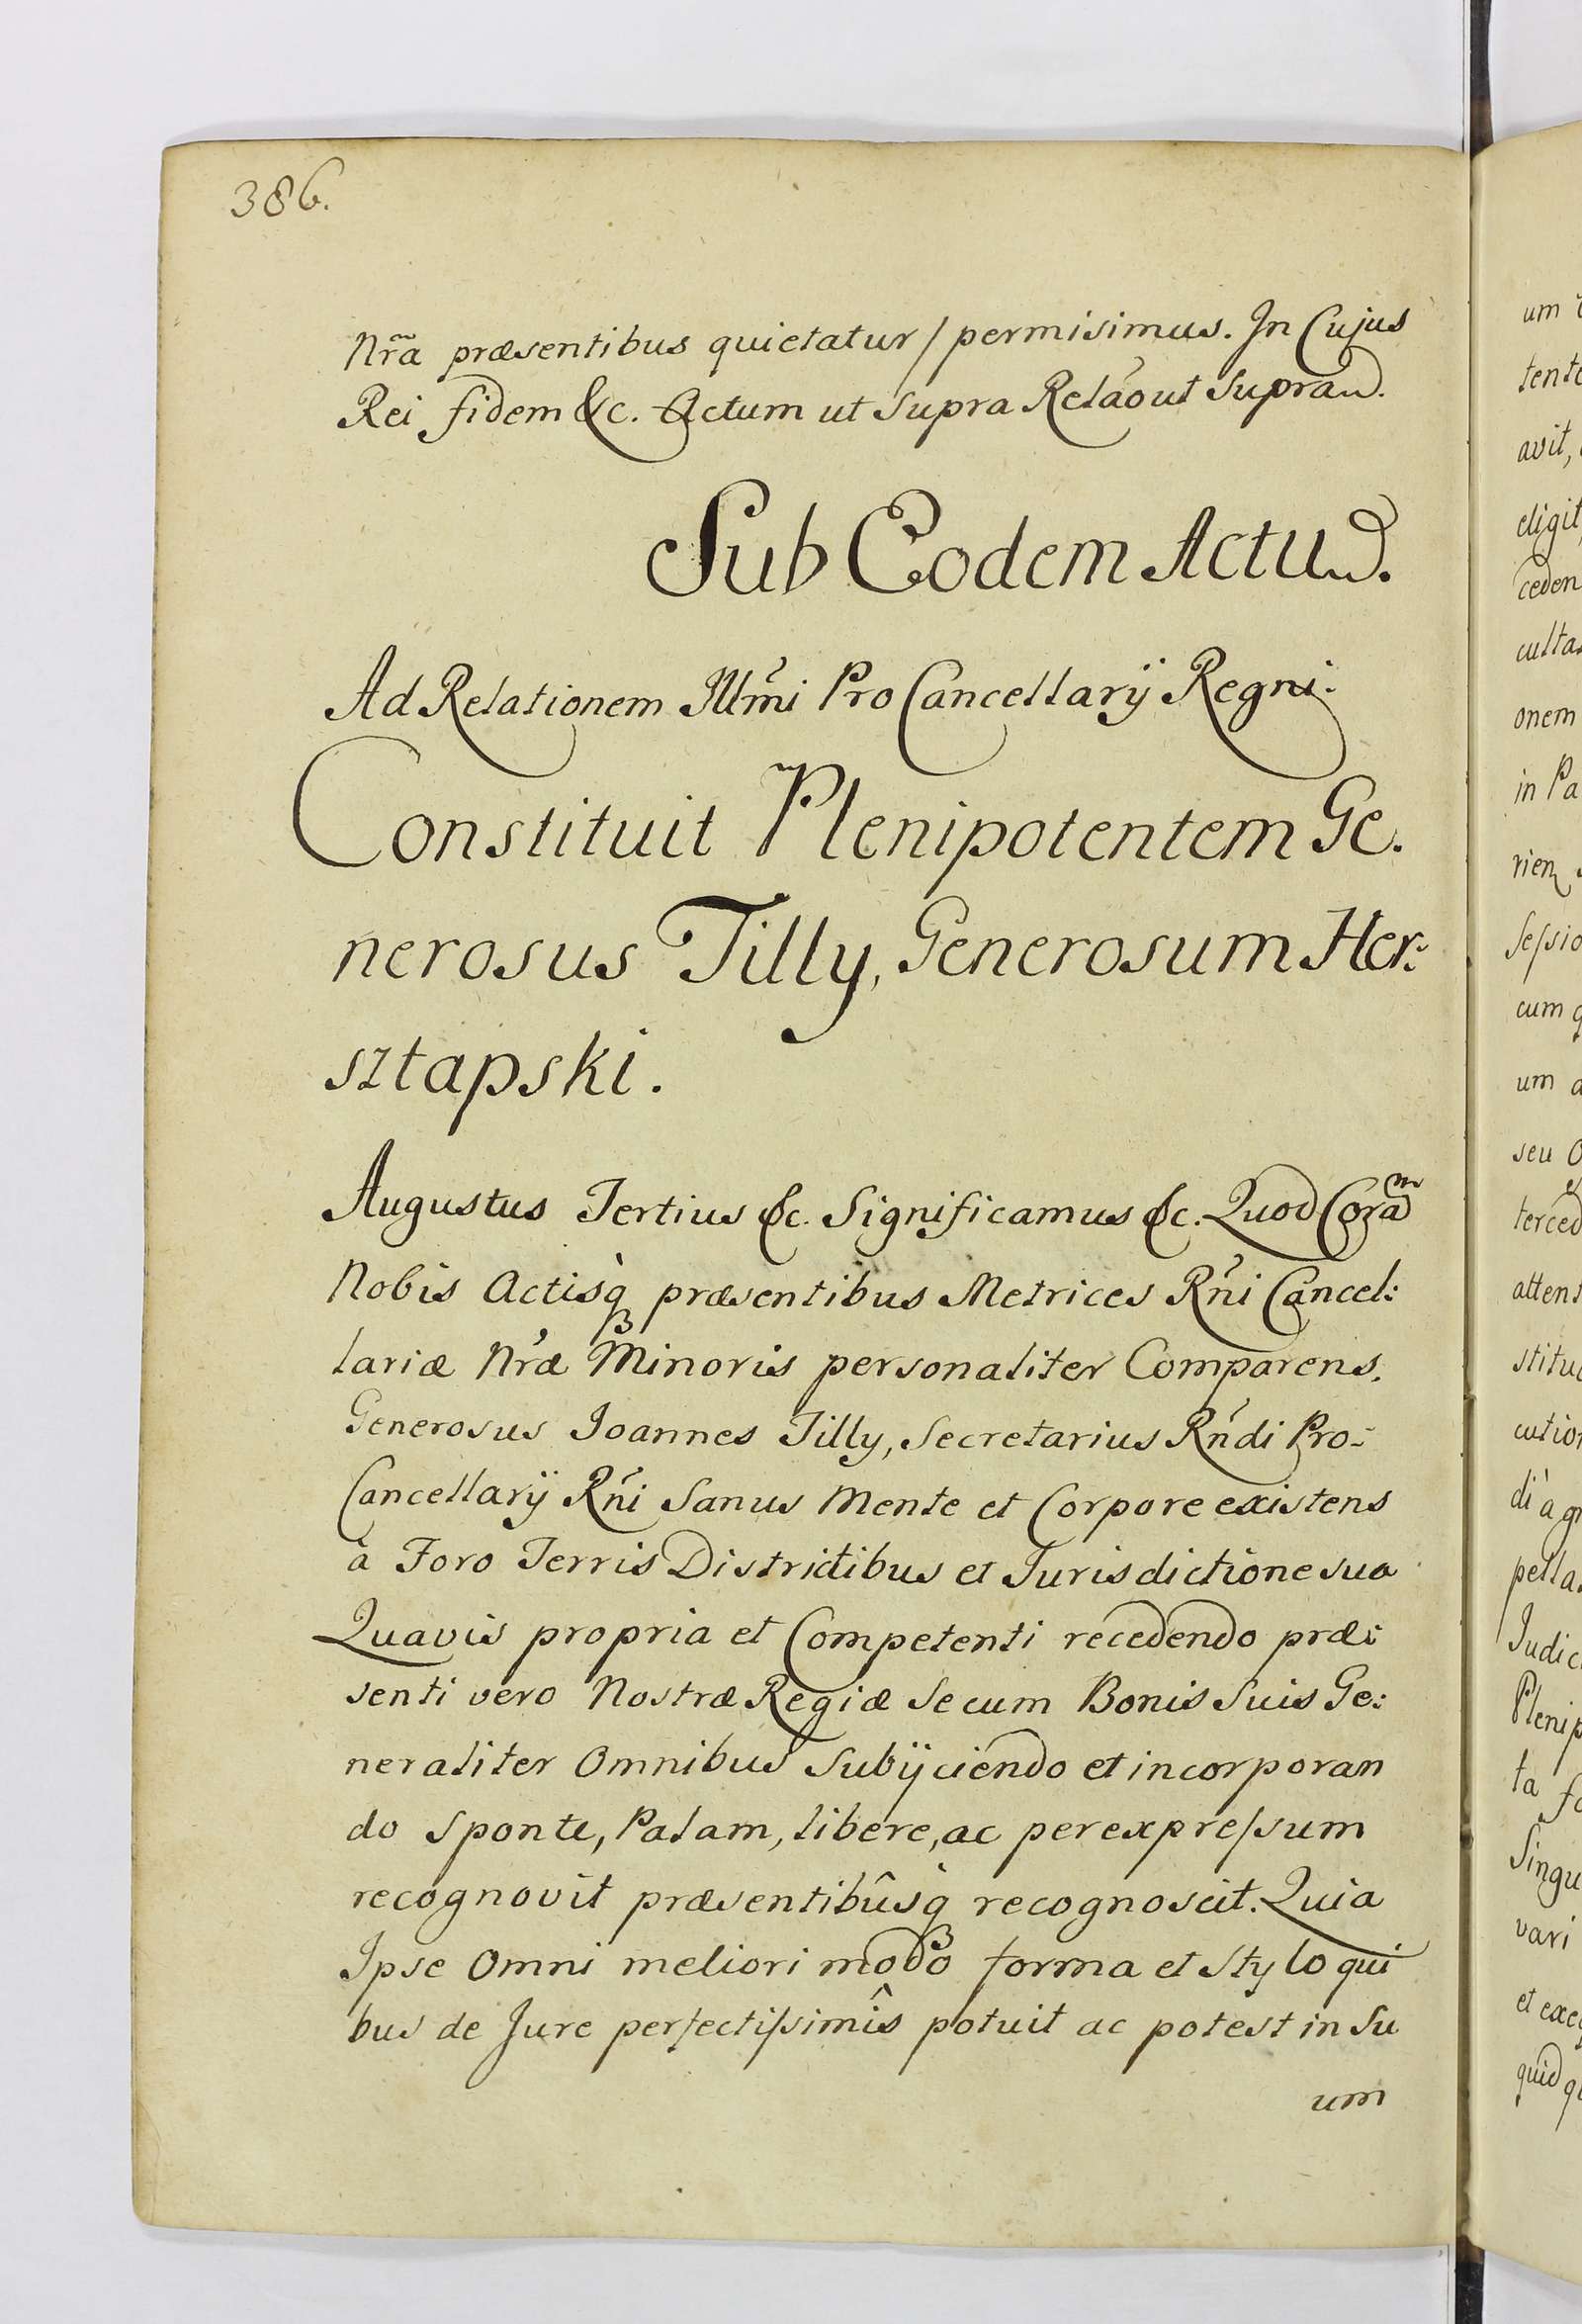 386.
Nr̃a præsentibus quietatur / permisimus. In Cujus
Rei fidem &c. Actum ut supra Relão ut supra.
Sub Eodem Actu.
Ad Relationem Illm̃i Pro Cancellarÿ Regni.
Constituit Plenipotentem Ge.
nerosus Tilly, Generosum Her:
sztapski.
Augustus Tertius &c. Significamus &c. Quod Coram
Nobis Actisq3 præsentibus Metrices Rñi Cancel:
lariæ Nr̃æ Minoris personaliter Comparens.
Generosus Joannes Tilly, Secretarius Rñdi Pro:
Cancellarÿ Rñi Sanus Mente et Corpore existens
à Foro Terris Districtibus et Jurisdictione sua
Quavis propria et Competenti recedendo præ:
senti vero Nostræ Regiæ Secum Bonis Suis Ge:
neraliter Omnibus Subÿciendo et incorporan
do Sponte, Palam, libere, ac per expreſsum
recognovit præsentibûsq3 recognoscit. Quia
Ipse Omni meliori modo forma et Stylo qui
bus de Jure perfectiſsimîs potuit ac potest in Su
um
um
tent
avit,
eligit,
ceden
culta
onem
in Pa
rien
Seſsio
cum q
um a
seu O
terced
attens
stitu
cution
di à gr
pella
Judic
Plenip
ta fo
Singu
vari
et exe
quid q